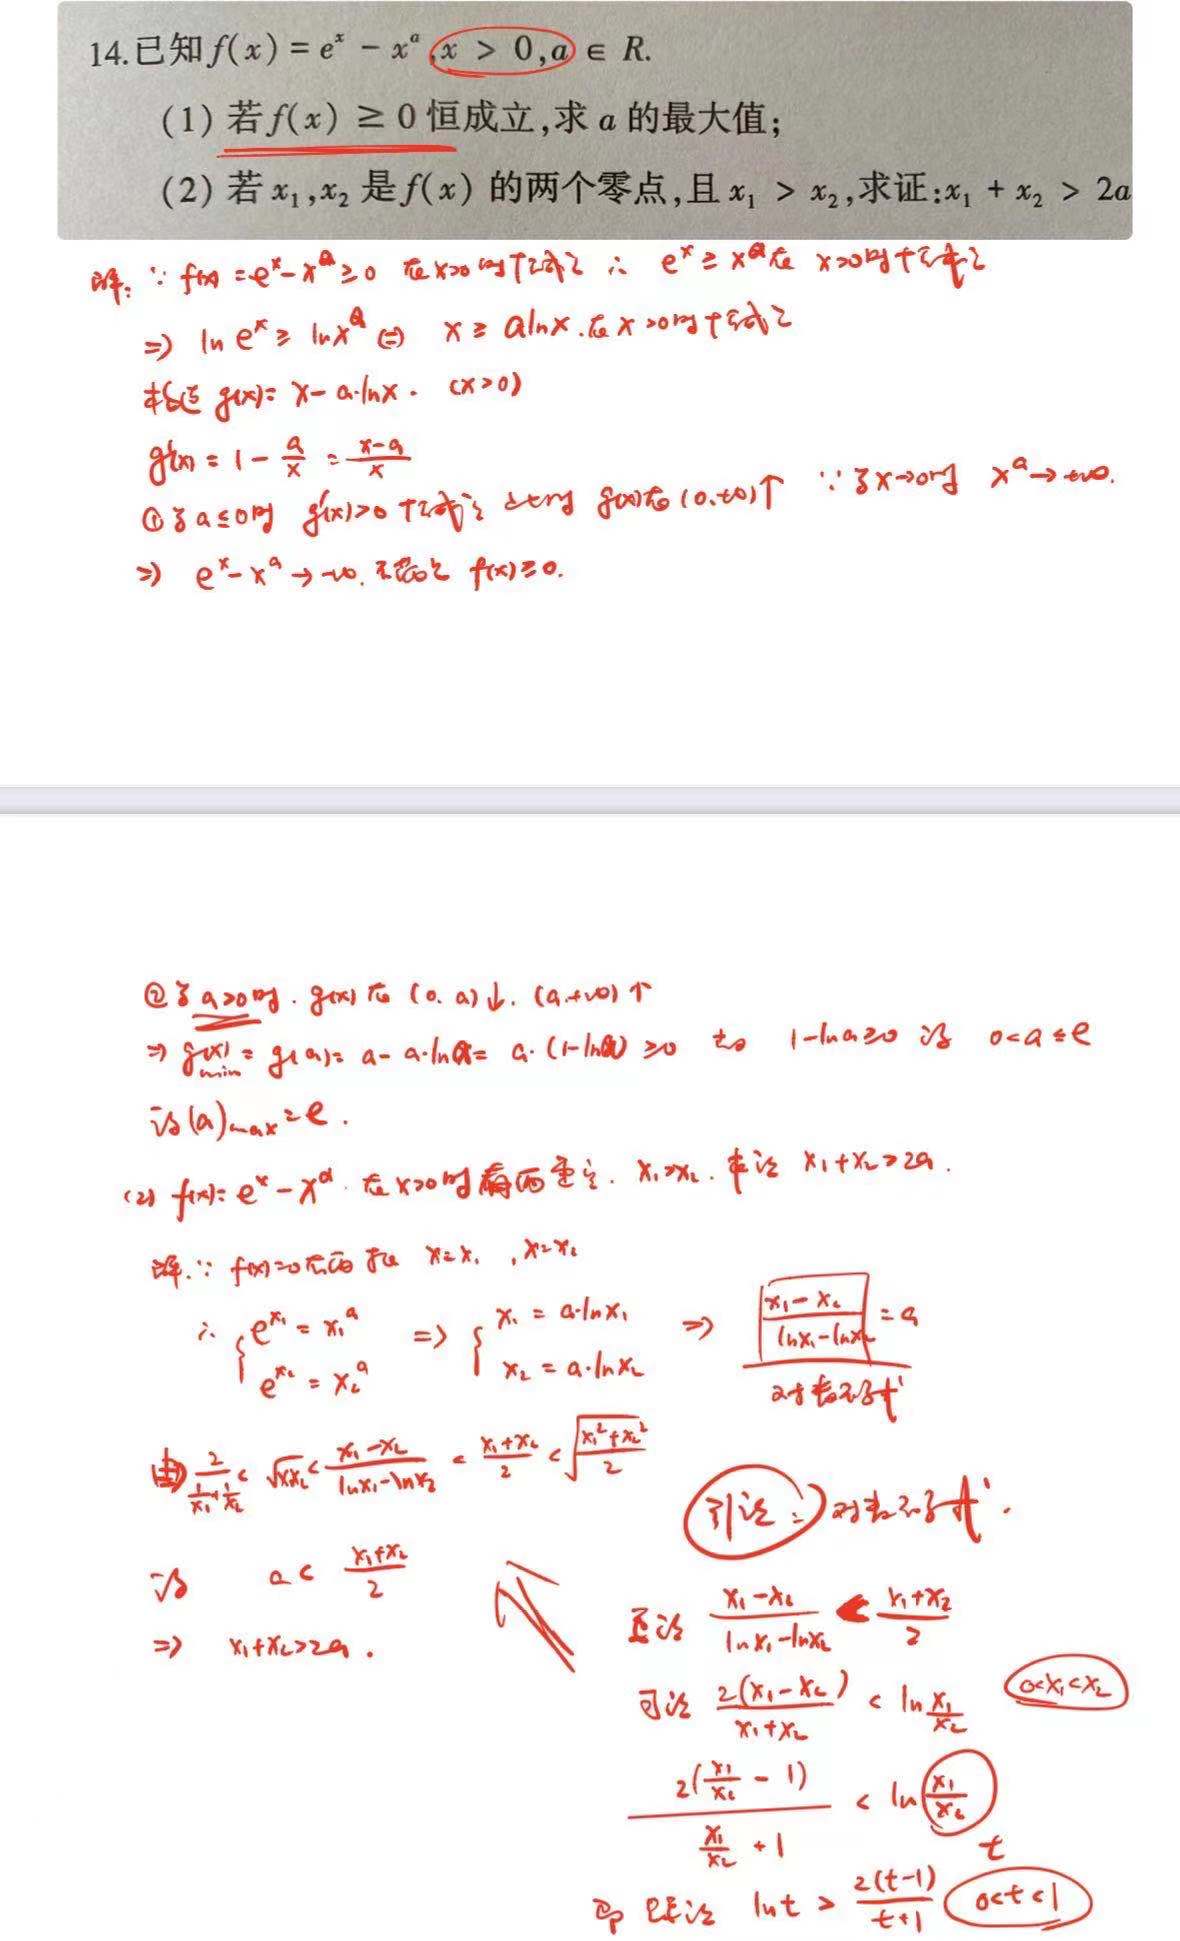 14.已知f(x)=eˣ-xᵃ,x>0,a∈R.
(1)若f(x)≥0恒成立,求a的最大值;
(2)若x₁,x₂是f(x)的两个零点,且x₁>x₂,求证:x₁+x₂>2a
解:∵f(x)=eˣ-xᵃ≥0在x>0时恒成立∴eˣ≥xᵃ在x>0时恒成立
⇒lneˣ≥lnxᵃ⇔x≥alnx.在x>0时恒成立
构造g(x)=x-a·lnx.(x>0)
g'(x)=1-a/x=(x-a)/x
①当a≤0时g'(x)>0恒成立 此时g(x)在(0,+∞)↑ ∵当x→0时xᵃ→+∞.
⇒eˣ-xᵃ→-∞.不满足f(x)≥0.
②当a>0时.g(x)在(0,a)↓.(a,+∞)↑
⇒g(x)min=g(a)=a-a·lna=a·(1-lna)≥0 知1-lna≥0得0<a≤e
得(a)max=e.
(2)f(x)=eˣ-xᵃ.在x>0时有两零点.x₁>x₂.求证x₁+x₂>2a.
解.∵f(x)=0有两根x=x₁,x=x₂
∴{eˣ¹=x₁ᵃ eˣ²=x₂ᵃ ⇒{x₁=a·lnx₁ x₂=a·lnx₂ ⇒(x₁-x₂)/(lnx₁-lnx₂)=a
对数不等式
由2/(1/x₁+1/x₂)<√x₁x₂<(x₁-x₂)/(lnx₁-lnx₂)<(x₁+x₂)/2<√((x₁²+x₂²)/2)
得 a<(x₁+x₂)/2
⇒x₁+x₂>2a.
引论:对数不等式.
要证(x₁-x₂)/(lnx₁-lnx₂)<(x₁+x₂)/2
可证2(x₁-x₂)/(x₁+x₂)<ln x₁/x₂ 0<x₁<x₂
2(x₁/x₂-1)/(x₁/x₂+1)<ln x₁/x₂
t
即 lnt>2(t-1)/(t+1) 0<t<1